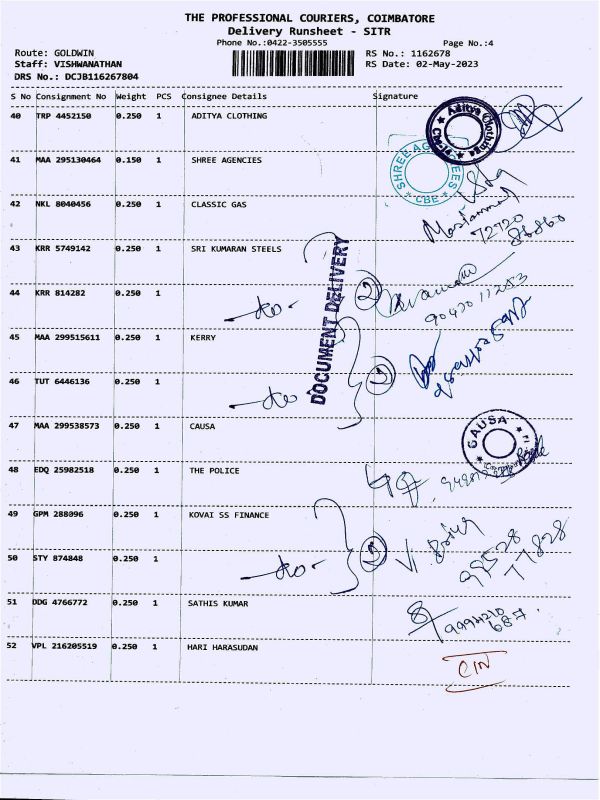 THE PROFESSIONAL COURIERS, COIMBATORE
Delivery Runsheet - SITR
Phone No.:0422-3505555 Page No.:4
Route: GOLDWIN RS No.: 1162678
Staff: VISHWANATHAN RS Date: 02-May-2023
DRS No.: DCJB116267804
S No Consignment No Weight PCS Consignee Details Signature
40 TRP 4452150 0.250 1 ADITYA CLOTHING
Aditya Clothings
41 MAA 295130464 0.150 1 SHREE AGENCIES
SHREE AGENCIES
CBE
42 NKL 8040456 0.250 1 CLASSIC GAS
72720
86860
43 KRR 5749142 0.250 1 SRI KUMARAN STEELS
DOCUMENT DELIVERY
44 KRR 814282 0.250 1 -do- 2
45 MAA 299515611 0.250 1 KERRY
46 TUT 6446136 0.250 1 -do-
47 MAA 299538573 0.250 1 CAUSA
CAUSA
48 EDQ 25982518 0.250 1 THE POLICE
49 GPM 288096 0.250 1 KOVAI SS FINANCE
98528
77828
50 STY 874848 0.250 1 -do-
51 DDG 4766772 0.250 1 SATHIS KUMAR
687
52 VPL 216205519 0.250 1 HARI HARASUDAN